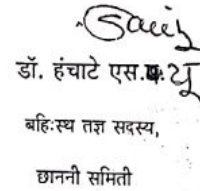 डॉ. हंचाटे एस. यू
बहिःस्थ तज्ञ सदस्य,
छाननी समिती